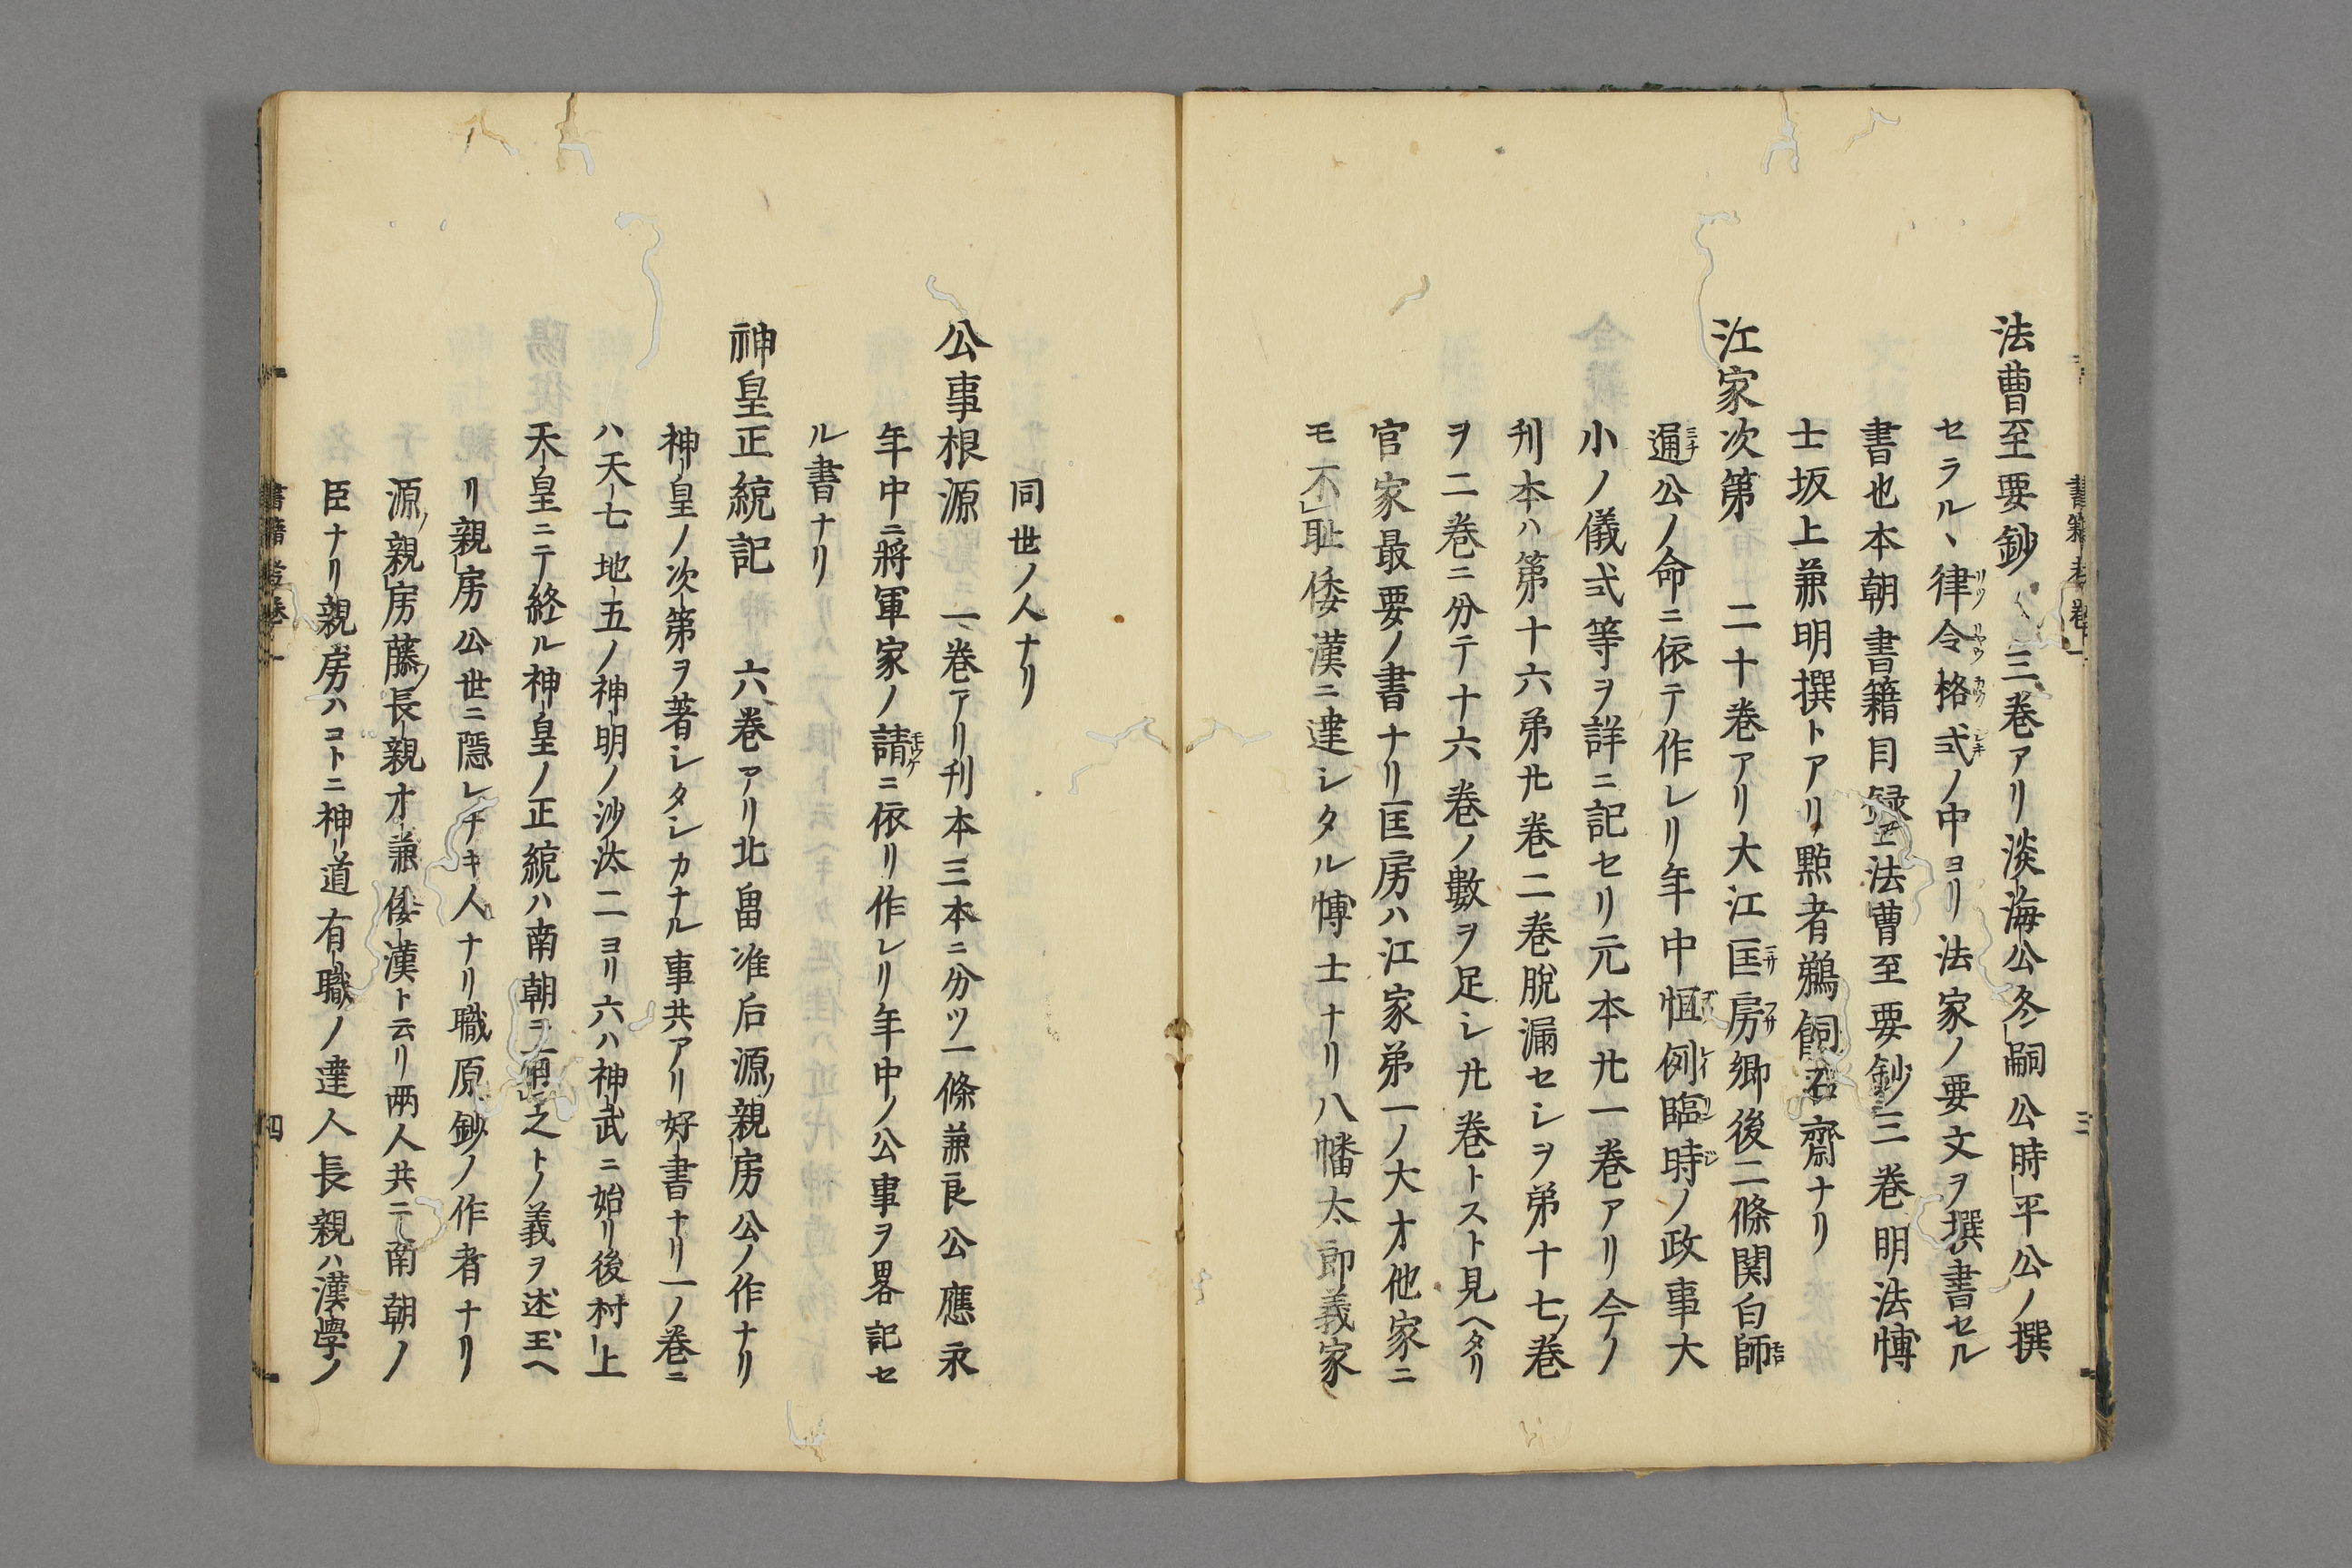 法曹至要鈔　三巻アリ淡海公冬嗣公時平公ノ撰
セラル、律令格式ノ中ヨリ法家ノ要文ヲ撰書セル
書也本朝書籍目録ニ法曹至要鈔三巻明法博
士坂上兼明撰トアリ點者鵜飼石齋ナリ
江家次第　二十巻アリ大江匡房卿後二條関白師
通公ノ命ニ依テ作レリ年中恒例臨時ノ政事大
小ノ儀式等ヲ詳ニ記セリ元本廿一巻アリ今ノ
刋本ハ第十六弟廿巻二巻脱漏セシヲ弟十七ノ巻
ヲ二巻ニ分テ十六巻ノ數ヲ足シ廿巻トスト見ヘタリ
官家最要ノ書ナリ匡房ハ江家弟一ノ大才他家ニ
モ不耻倭漢ニ達シタル博士ナリ八幡太郎義家
同世ノ人ナリ
公事根源　一巻アリ刋本三本ニ分ツ一條兼良公應永
年中ニ將軍家ノ請ニ依リ作レリ年中ノ公事ヲ畧記セ
ル書ナリ
神皇正統記　六巻アリ北畠准后源ノ親房公ノ作ナリ
神皇ノ次第ヲ著シタシカナル事共アリ好書ナリ一ノ巻ニ
ハ天七地五ノ神明ノ沙汰二ヨリ六ハ神武ニ始リ後村上
天皇ニテ終ル神皇ノ正統ハ南朝ヲ須之トノ義ヲ述玉ヘ
リ親房公世ニ隠レナキ人ナリ職原鈔ノ作者ナリ
源ノ親房藤ノ長親才兼倭漢ト云リ両人共ニ南朝ノ
臣ナリ親房ハコトニ神道有職ノ達人長親ハ漢學ノ
書籍考巻一　三
書籍考巻一　四